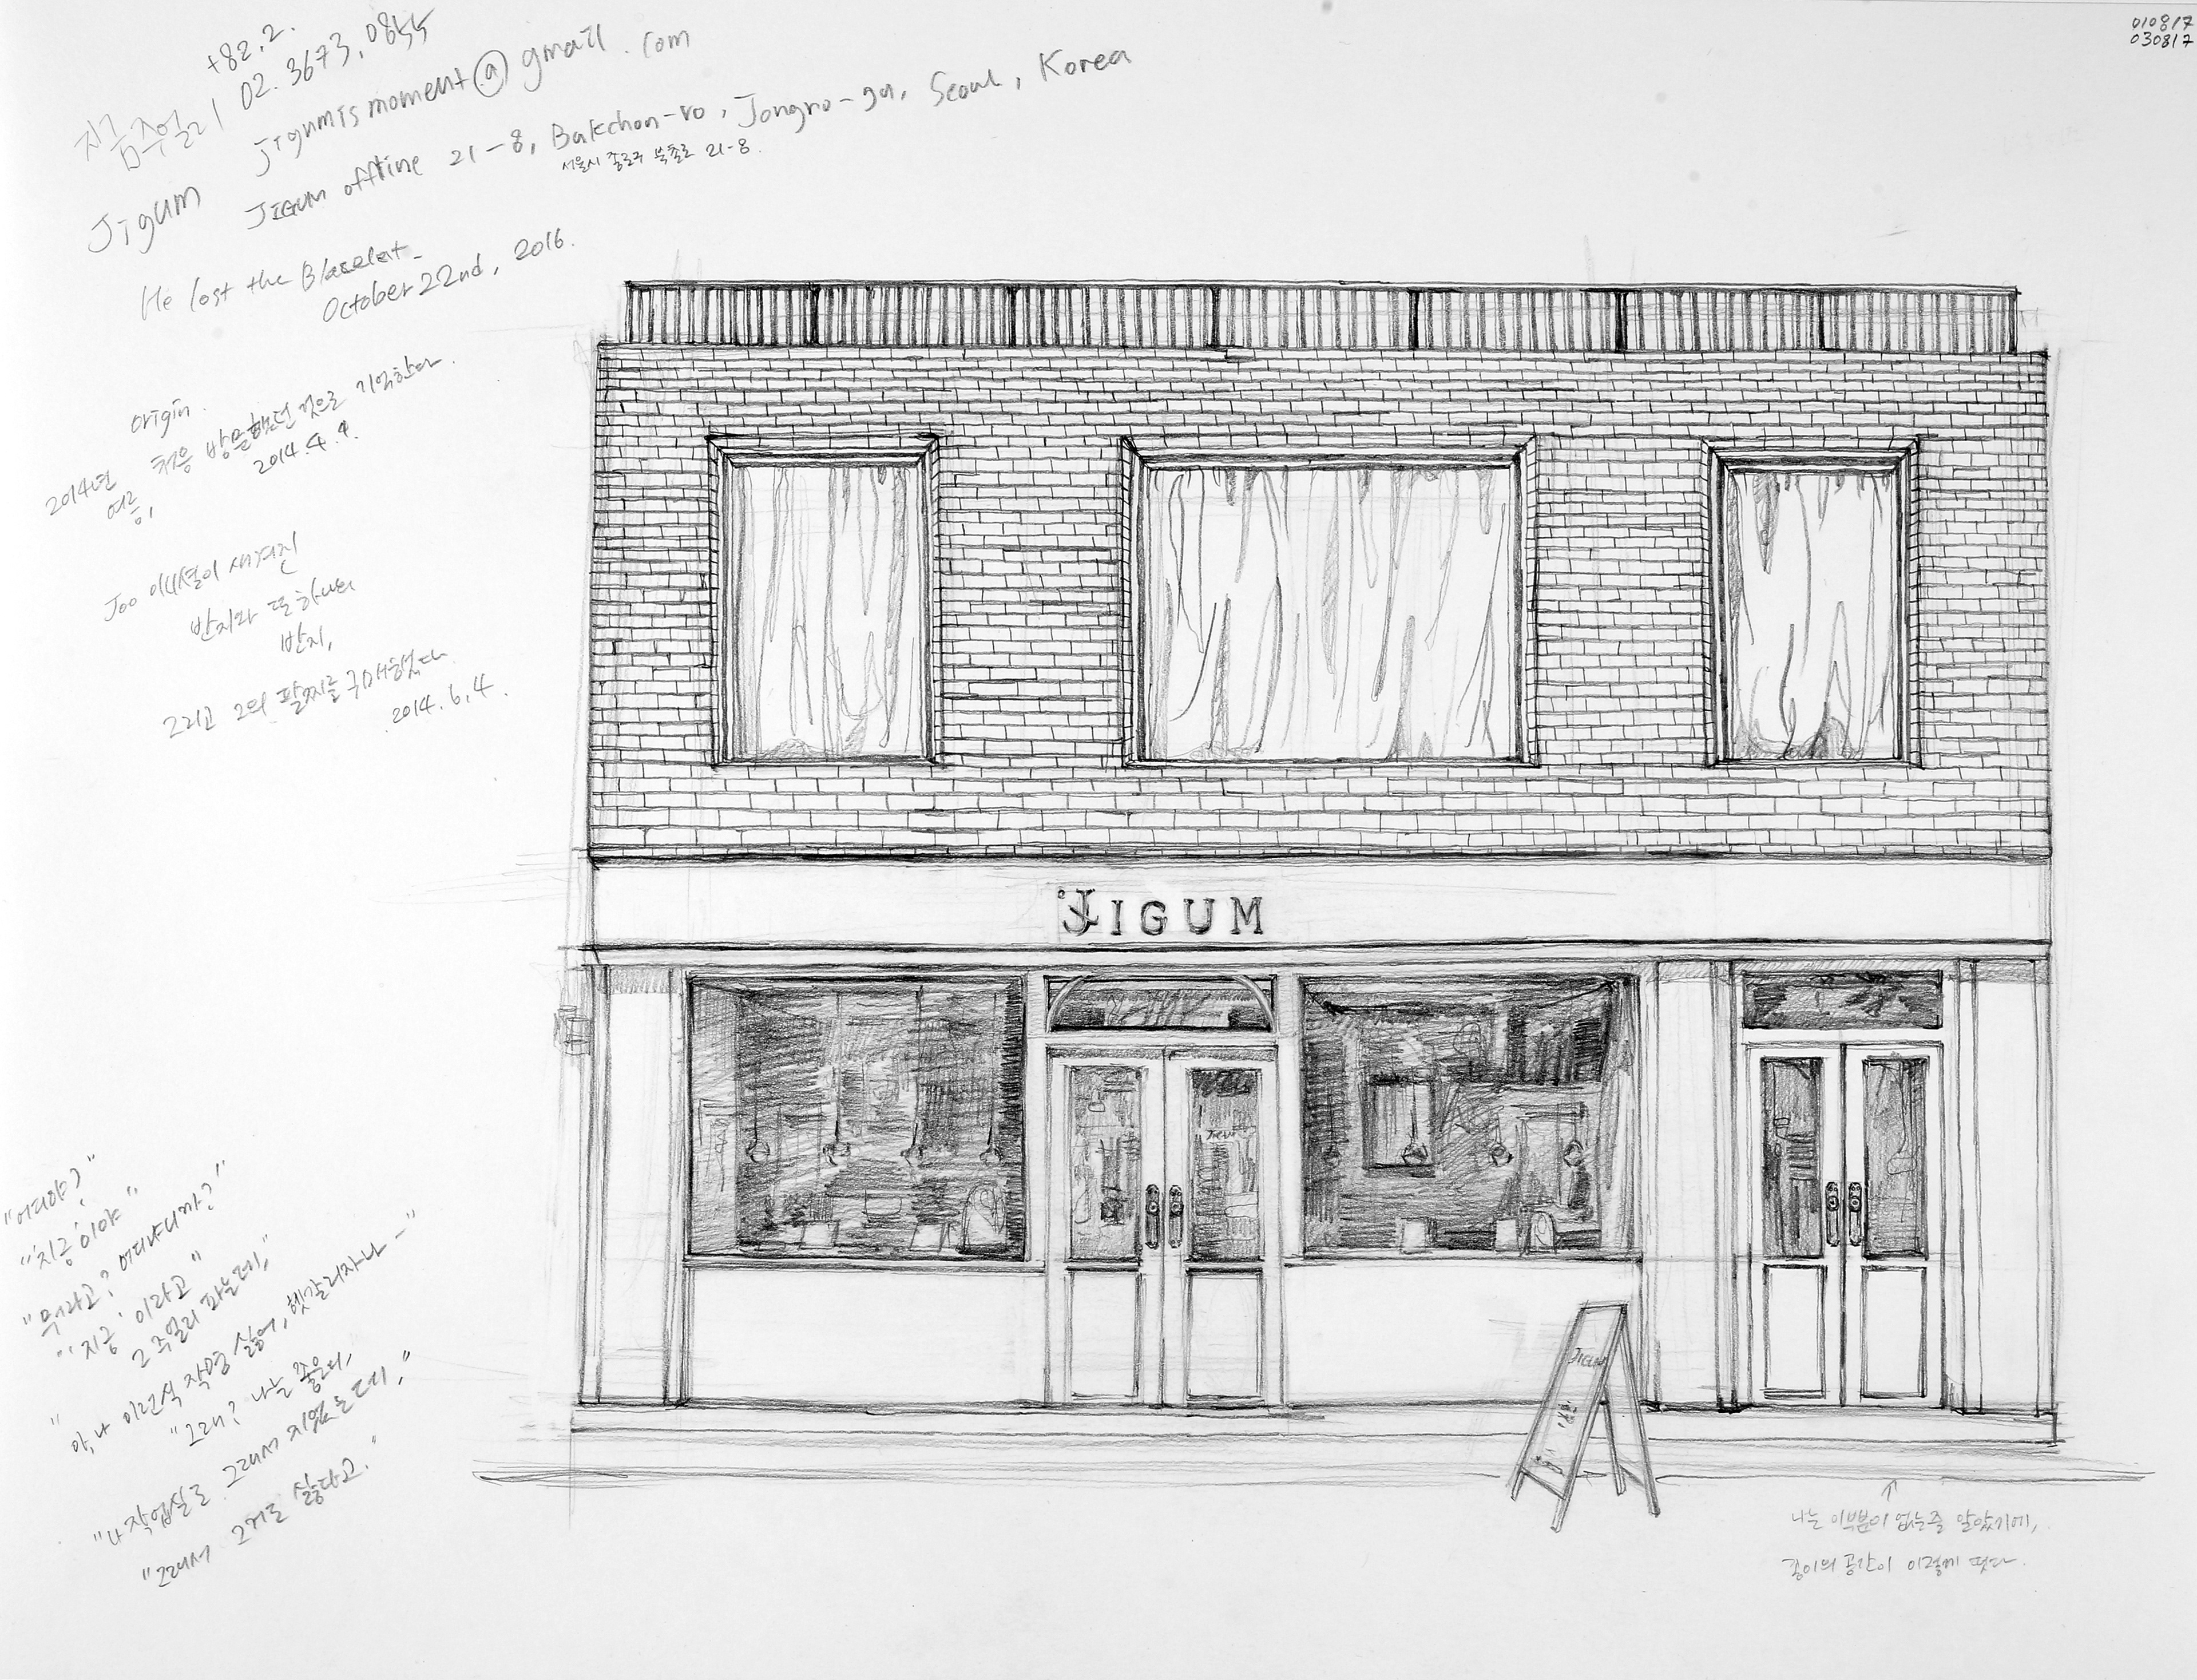 010817
030817
+82.2.
지금주얼리 02.3673.0855
Jigum jigumismoment@gmail.com
JIGUM offline 21-8, Bukchon-ro, Jongno-gu, Seoul, Korea
서울시 종로구 북촌로 21-8.
He lost the Bracelet.
October 22nd, 2016.
origin.
2014년 처음 방문했던 것으로 기억한다.
여름,
2014.4.4.
Joo 이니셜이 새겨진
반지와 또 하나의
반지,
그리고 그의 팔찌를 구매했다
2014.6.4.
JIGUM
JIGUM
"어디야?"
"'지금'이야"
"뭐라고? 어디냐니까?"
"'지금'이라고"
그 주얼리 파는데,"
"아, 나 이런식 작명 싫어, 헷갈리자나-"
"그래? 나는 좋은데,
"나 작업실도 그래서 지었는데,"
"그래서 그거도 싫다고."
↑
나는 이부분이 없는줄 알았기에,
종이의 공간이 이렇게 떳다.